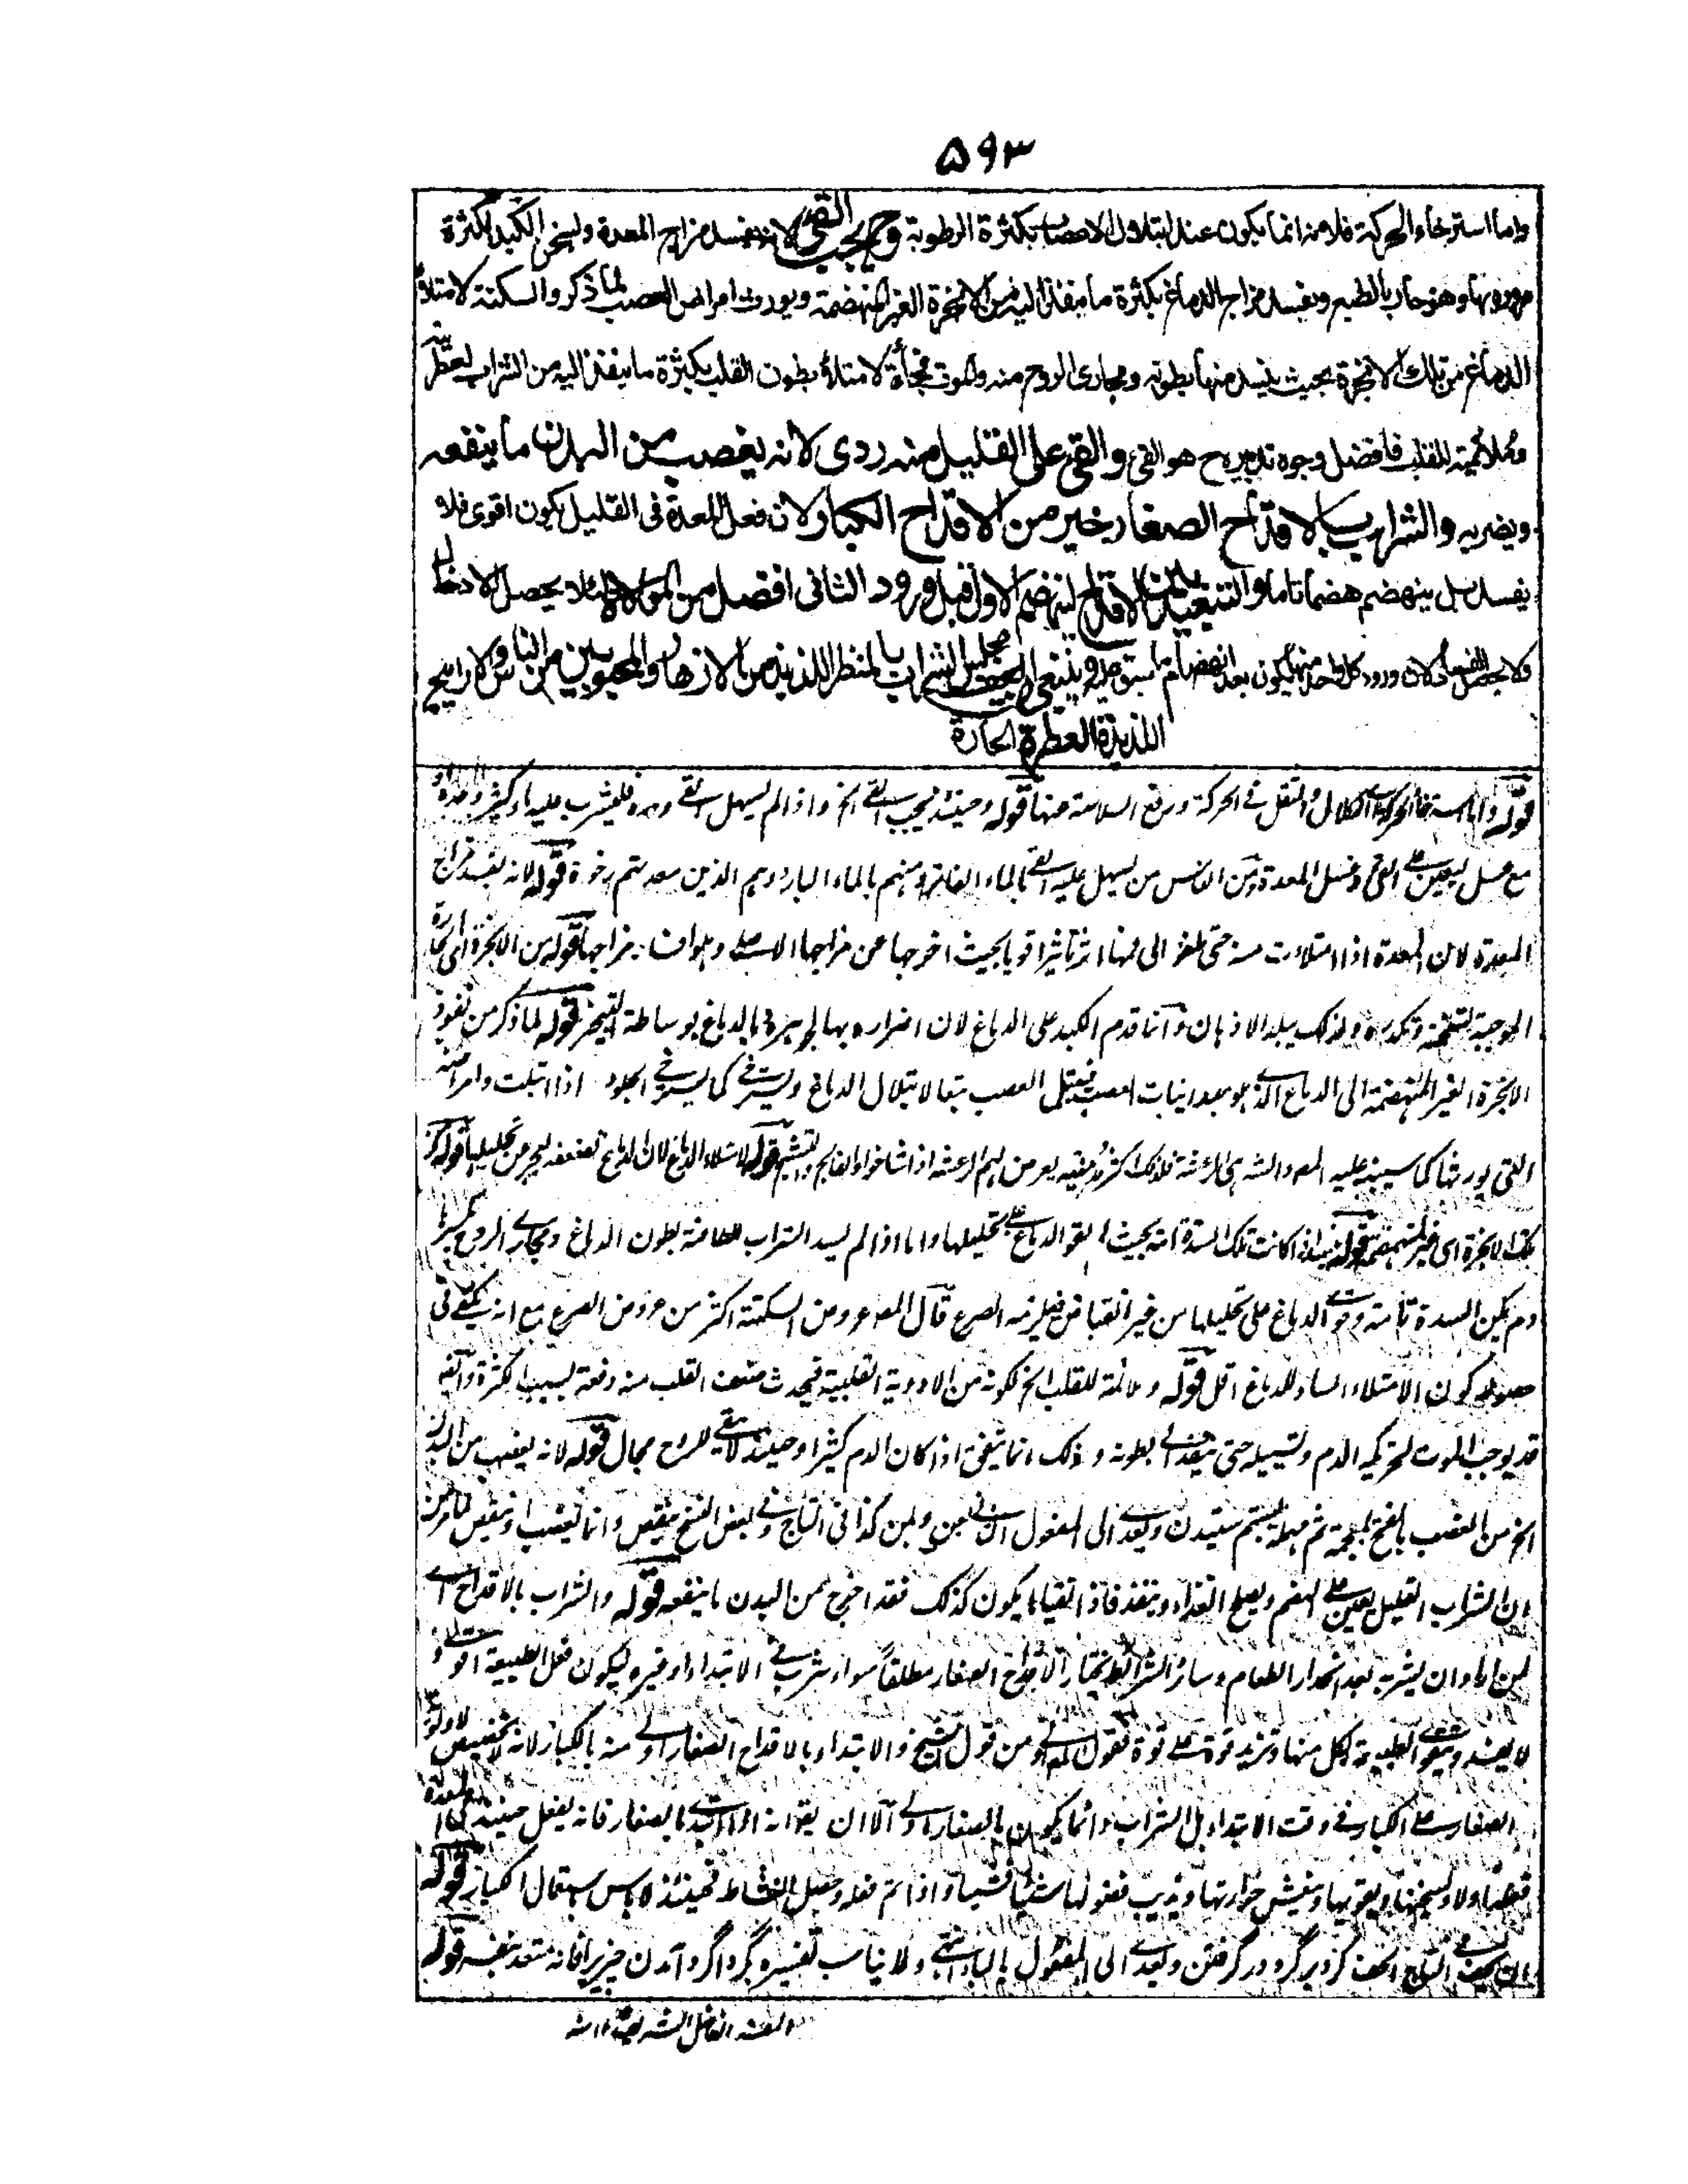 ۵۹۳
واما استرخاء الحركة فلانه انما يكون عند ابتلال الاعصاب بكثرة الرطوبة وح يجب القئ لانه يفسد مزاج المعدة ويسخن الكبد لكثرة
مروره بها وهو حار بالطبع ويفسد مزاج الدماغ بكثرة ما ينفذ اليه من الابخرة الغير المنهضمة ويورث امراض العصب لما ذكر والسكتة لامتلاء
الدماغ من تلك الابخرة بحيث ينسد منها بطونه ومجارى الروح منه والموت فجأة لامتلاء بطون القلب بكثرة ما ينفذ اليه من الشراب لعطريته
وملائمته للقلب فافضل وجوه تدبيره ح هو القئ والقئ على القليل منه ردى لانه يغصب من البدن ما ينفعه
ويضر به والشراب بالاقداح الصغار خير من الاقداح الكبار لان فعل المعدة فى القليل يكون اقوى فلا
يفسد بل ينهضم هضما تاما والتبعيد بين الاقداح لينهضم الاول قبل ورود الثانى افضل من الموالاة لئلا يحصل الادخال
ولا يحصل لان ورود كل واحد منها يكون بعد انهضام ما سبق عليه وينبغى ان يحف مجلس الشراب بالمنظر اللذيذ من الازهار والمحبوبين من الناس والاراييح
اللذيذة العطرة الحارة
قوله واما استرخاء الحركة اى الكلال والثقل فى الحركة ورفع السلامة عنها قوله وحينئذ يجب القئ الخ واذا لم يسهل القئ وحده فليشرب عليه ماء كثير وحده او
مع عسل ليعين على القئ وغسل المعدة ومن الناس من يسهل عليه القئ بالماء الفاتر ومنهم بالماء البارد وهم الذين معدتهم رخوة قوله لانه يفسد مزاج
المعدة لان المعدة اذا امتلأت منه حتى اثر تاثيرا قويا بحيث اخرجها عن مزاجها الاصلى قوله من الابخرة اى الحارة
الموجبة لتسخنه وتكدره ولذلك يبلد الاذهان وانما قدم الكبد على الدماغ لان اضراره بها لجوهره وبالدماغ بوساطة التبخير قوله لما ذكر من نفوذ
الابخرة الغير المنهضمة الى الدماغ الذى هو مبدا نبات العصب فيبتل العصب تبعا لابتلال الدماغ ويسترخى كما يسترخى الجلود اذا ابتلت وامراضه
التى يورثها كما سيبينه عليه قوله لامتلاء الدماغ لان الدماغ لضعفه يعجز عن تحليلها قوله من
تلك الابخرة اى غير المنهضمة قوله اذا كانت تلك السدة تامة بحيث لم يقو الدماغ على تحليلها واما اذا لم يسد الشراب بطون الدماغ ومجارى الروح
ولم يكن السدة تامة وقوى الدماغ على تحليلها من غير انقباض فيلزمه الصرع قال عروض السكتة اكثر من عروض الصرع مع انه يكفى فى
حصوله كون الامتلاء الساد للدماغ اقل قوله وملائمته للقلب الخ لكونه من الادوية القلبية فيحدث ضعف القلب منه دفعة بسبب الكثرة وانه
قد يوجب الموت لتحريكه الدم وتسييله حتى ينفذ الى بطونه وذلك انما يتفق اذا كان الدم كثيرا وحينئذ لا يبقى للروح مجال قوله لانه يغصب من البدن
الخ من الغصب بالفتح بالمعجمة ثم مهملة بستم ستيدن ويعدى الى المفعول الثانى بعن وبمن كذا فى التاج وفى بعض النسخ ينقص وانما يغصب او ينقص لما مر من
ان الشراب القليل يعين على الهضم ويصلح الغذاء وينفذه فاذا تقيأ ما يكون كذلك فقد اخرج من البدن ما ينفعه قوله والشراب بالاقداح اى
لمن اراد ان يشربه بعد انحدار الطعام وسائر الشرائط يختار الاقداح الصغار مطلقا سواء شرب فى الابتداء او غيره ليكون فعل الطبيعة اقوى و
لا يفسد ويقوى الطبيعة لكل منها وتزيد قوة على قوة من قول الشيخ والابتداء بالاقداح الصغار اولى منه بالكبار لانه لا تخصيص لاولوية
الصغار على الكبار فى وقت الابتداء بل الشراب دائما يكون بالصغار اولى الا ان يقال انه اذا ابتدئ بالصغار فانه يفعل حينئذ فى المعدة
فعلا اولا ويسخنها ويقويها وينعش حرارتها ويذيب فضولها شيئا فشيئا واذا تم فعله وحصل النشاط فحينئذ لا باس باستعمال الكبار قوله
ان يحف فى التاج الحف گرد برگرد در گرفتن ويعدى الى المفعول بالباء انتهى ولا يناسب تفسيره بگرداگرد آمدن چيزيرا فانه متعد بنفسه قوله